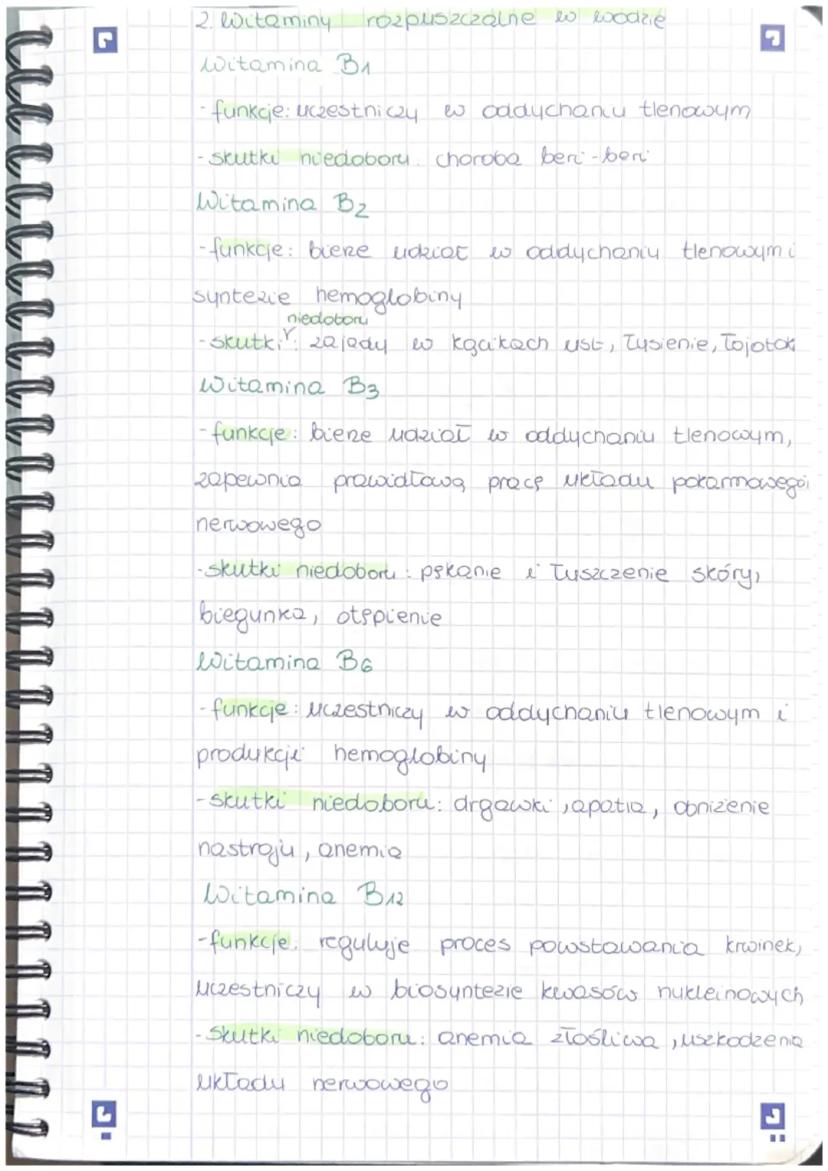 2. Witaminy rozpuszczalne w wodzie
Witamina B1
- funkcje: uczestniczy w oddychaniu tlenowym
- skutki niedoboru: choroba beri-beri
Witamina B2
- funkcje: bierze udział w oddychaniu tlenowym i
syntezie hemoglobiny
niedoboru
- skutki: zajady w kącikach ust, łysienie, łojotok
Witamina B3
- funkcje: bierze udział w oddychaniu tlenowym,
zapewnia prawidłową pracę układu pokarmowego i
nerwowego
- skutki niedoboru: pękanie i łuszczenie skóry,
biegunka, otępienie
Witamina B6
- funkcje: uczestniczy w oddychaniu tlenowym i
produkcji hemoglobiny
- skutki niedoboru: drgawki, apatia, obniżenie
nastroju, anemia
Witamina B12
- funkcje: reguluje proces powstawania krwinek,
uczestniczy w biosyntezie kwasów nukleinowych
- skutki niedoboru: anemia złośliwa, uszkodzenia
układu nerwowego